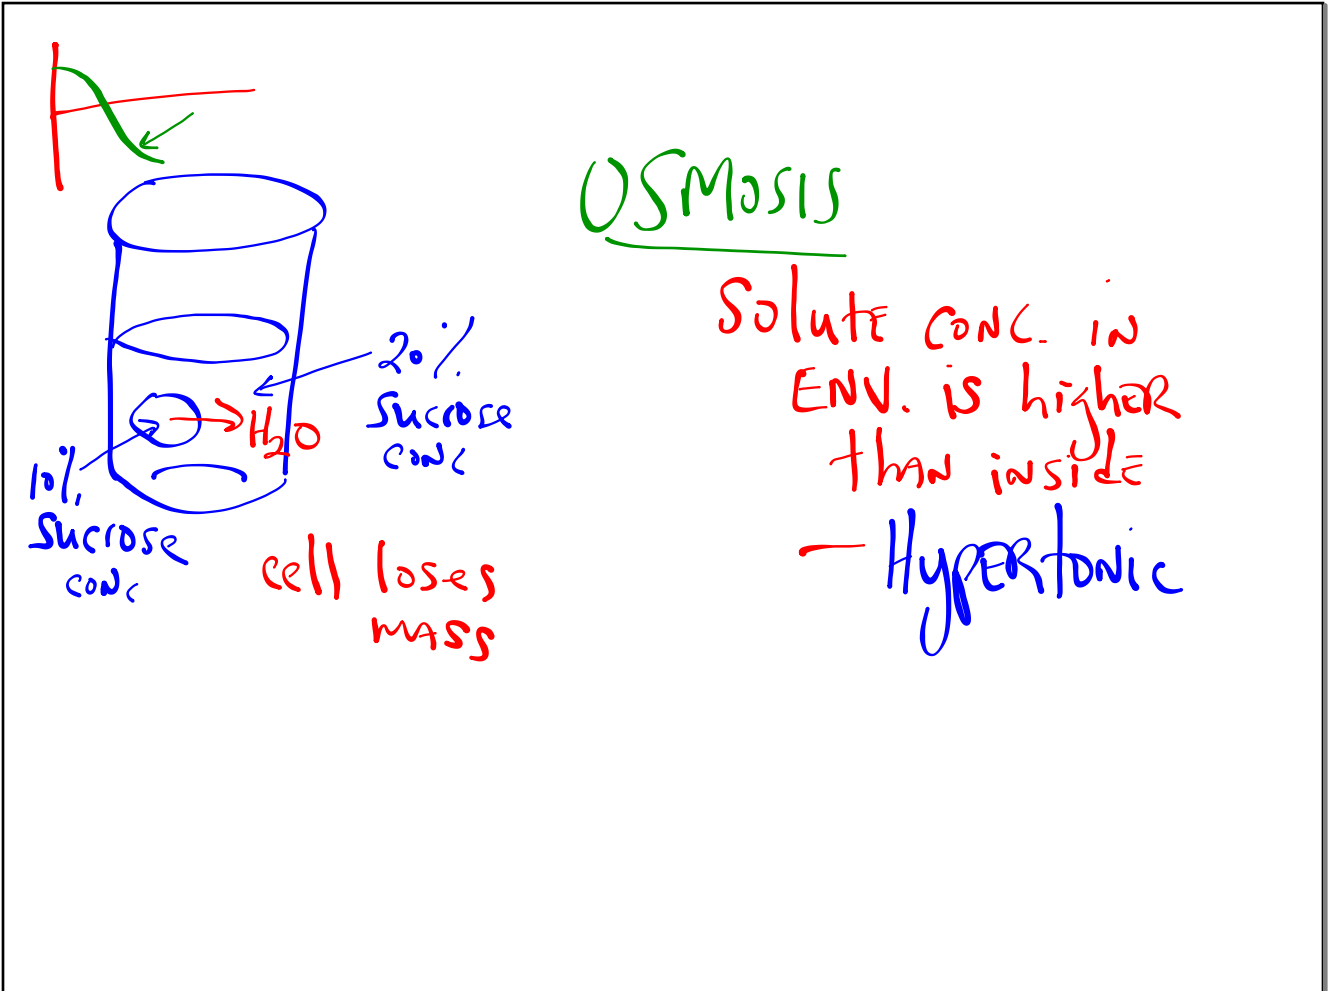 OSMOSIS
Solute conc. in
ENV. is higher
than inside
- Hypertonic
20%
sucrose
conc
H2O
10%
sucrose
conc
cell loses
mass